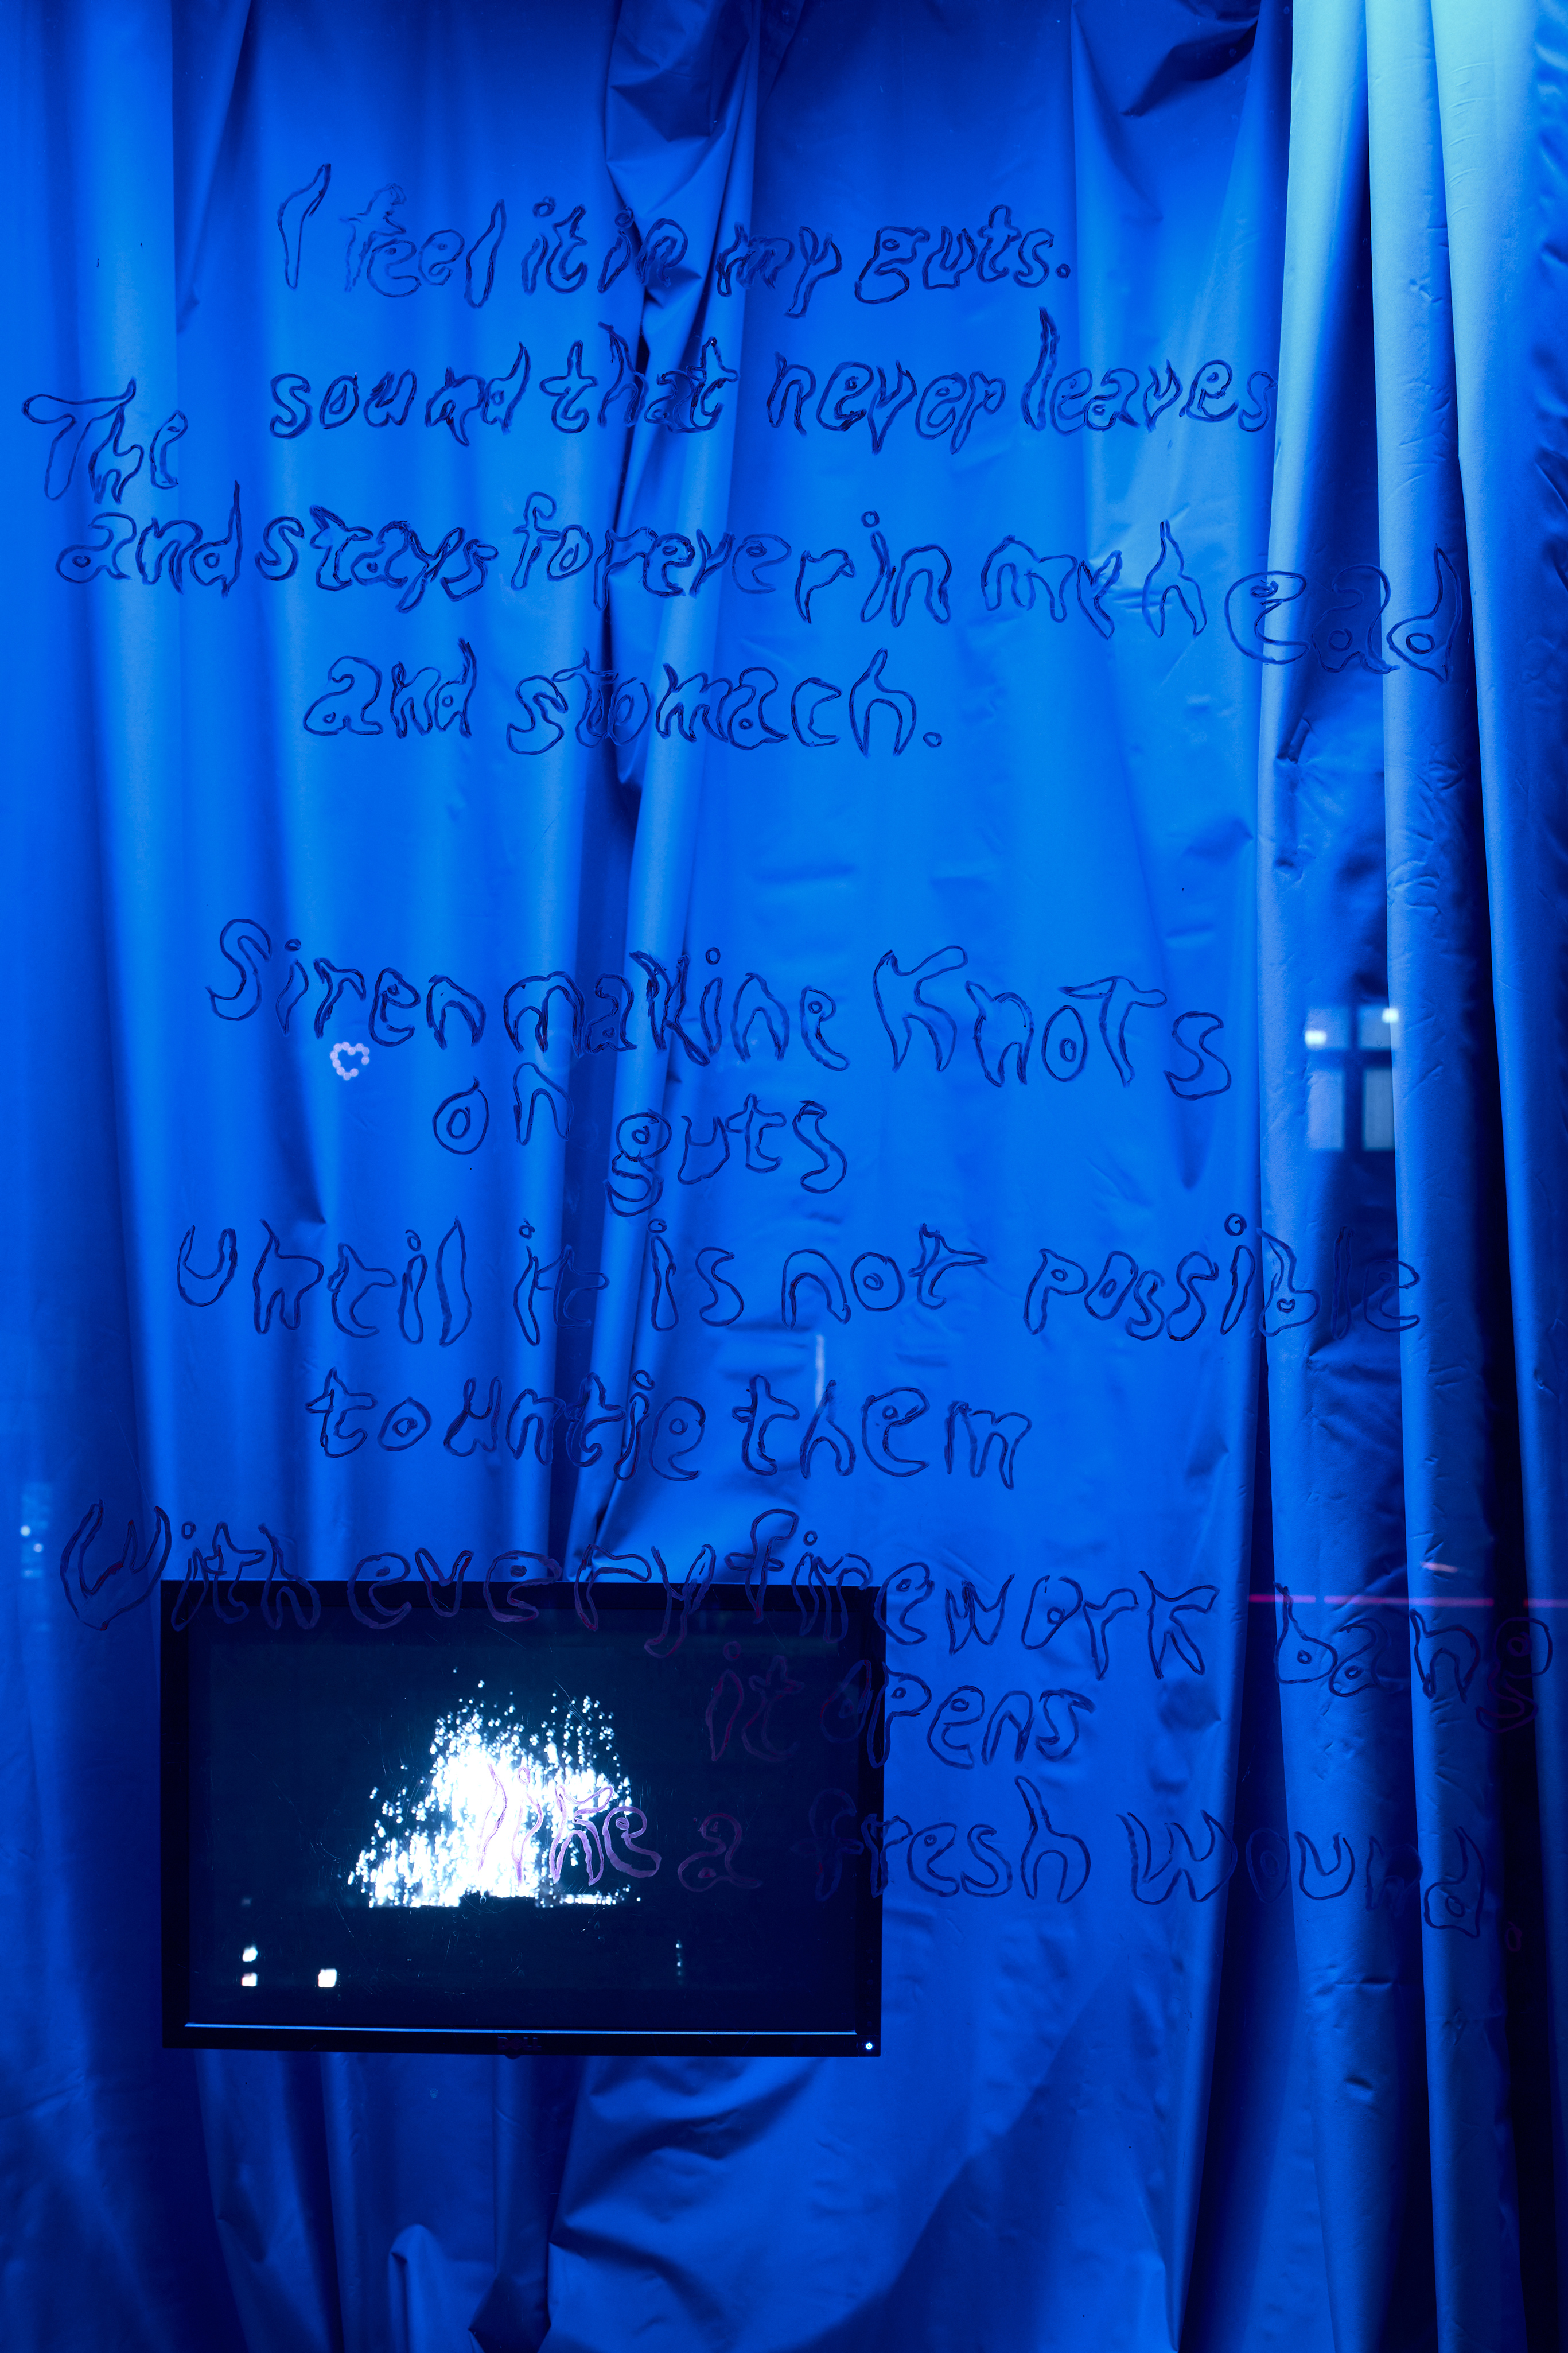 I feel it in my guts.
The sound that never leaves
and stays forever in my head
and stomach.
Siren making KnoTs
on guts
until it is not possible
to untie them
With every firework bang
it opens
like a fresh wound.